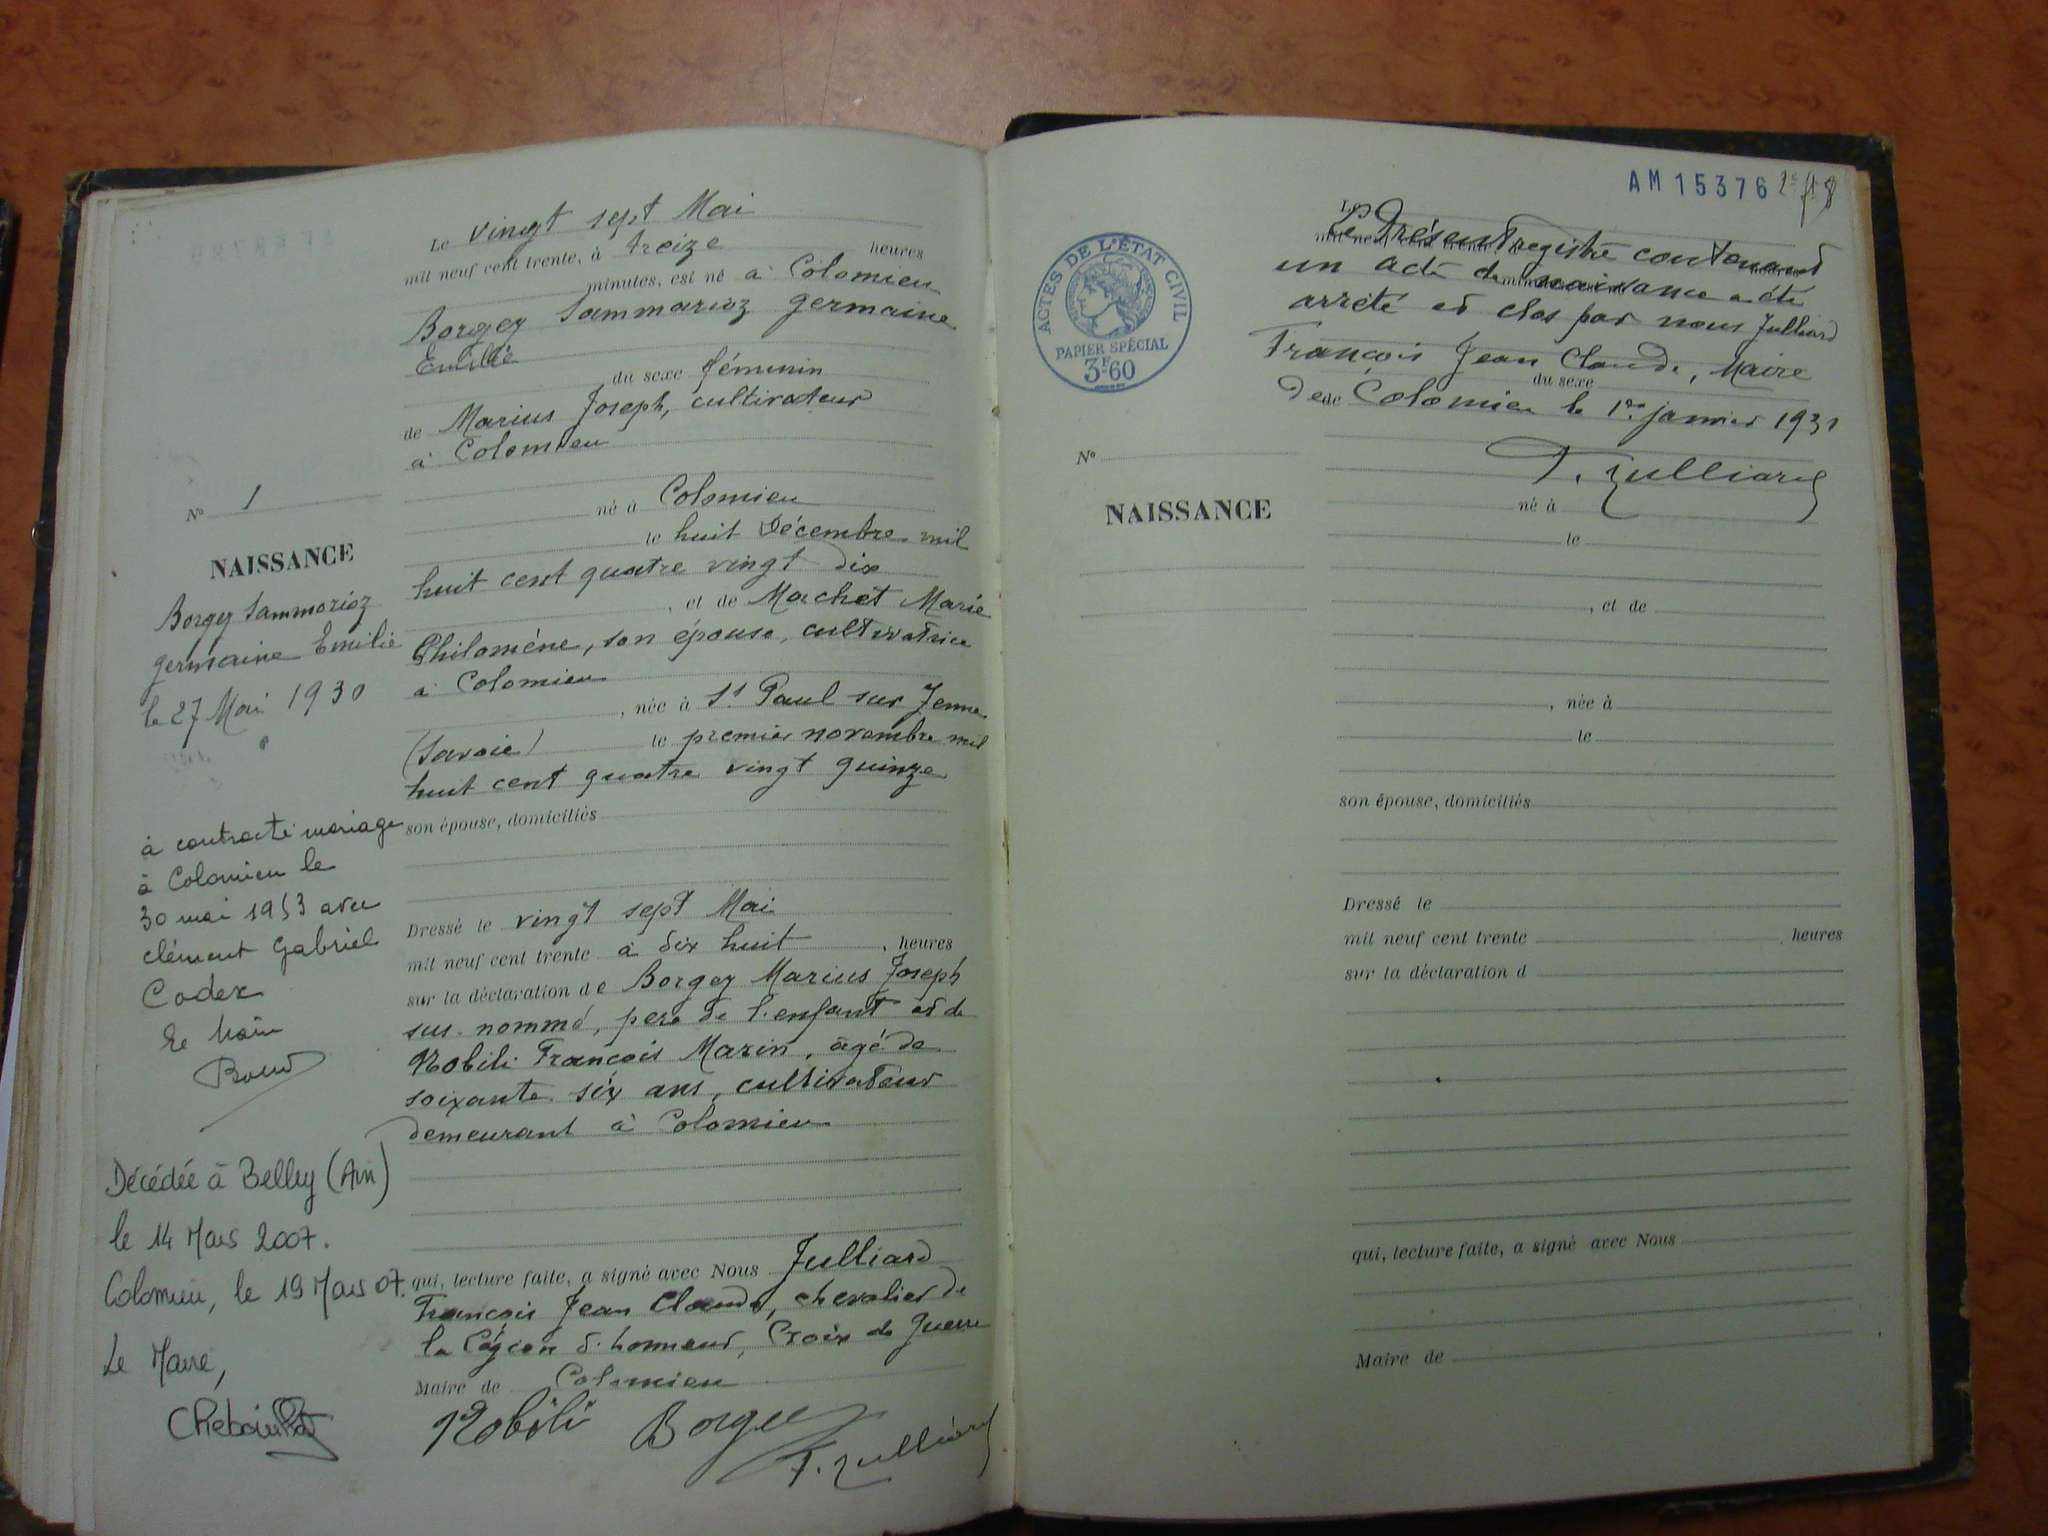 Le vingt sept Mai
mil neuf cent trente, à treize heures
minutes, est né à Colomieu
Borgey Sammorioz germaine
Emilie
du sexe féminin
de Marius Joseph, cultivateur
à Colomieu
né à Colomieu
le huit Décembre mil
huit cent quatre vingt dix
, et de Machet Marie
Philomène, son épouse, cultivatrice
à Colomieu
, née à St Paul sur Yenne
(Savoie) le premier novembre mil
huit cent quatre vingt quinze
son épouse, domiciliés
Dressé le vingt sept Mai
mil neuf cent trente à dix huit , heures
sur la déclaration de Borgey Marius Joseph
sus-nommé, père de l'enfant et de
Nobili François Marin, âgé de
soixante six ans, cultivateur
demeurant à Colomieu
qui, lecture faite, a signé avec Nous Julliard
François Jean Claude, chevalier de
la Légion d'honneur, Croix de guerre
Maire de Colomieu
Nobili Borgey
F. Julliard
No 1
NAISSANCE
Borgey Sammorioz
germaine Emilie
le 27 Mai 1930
à contracté mariage
à Colomieu le
30 mai 1953 avec
clément Gabriel
Codex
Le Maire
Décédée à Belley (Ain)
le 14 Mars 2007.
Colomieu, le 19 Mars 07.
Le Maire,
AM 15376
ACTES DE L'ÉTAT CIVIL
PAPIER SPÉCIAL
3F60
Le Présent registre contenant
un acte de naissance a été
arrêté et clos par nous Julliard
François Jean Claude, Maire
du sexe
de de Colomieu le 1er janvier 1931
F. Julliard
No
NAISSANCE
né à
le
, et de
, née à
le
son épouse, domiciliés
Dressé le
mil neuf cent trente , heures
sur la déclaration d
qui, lecture faite, a signé avec Nous
Maire de